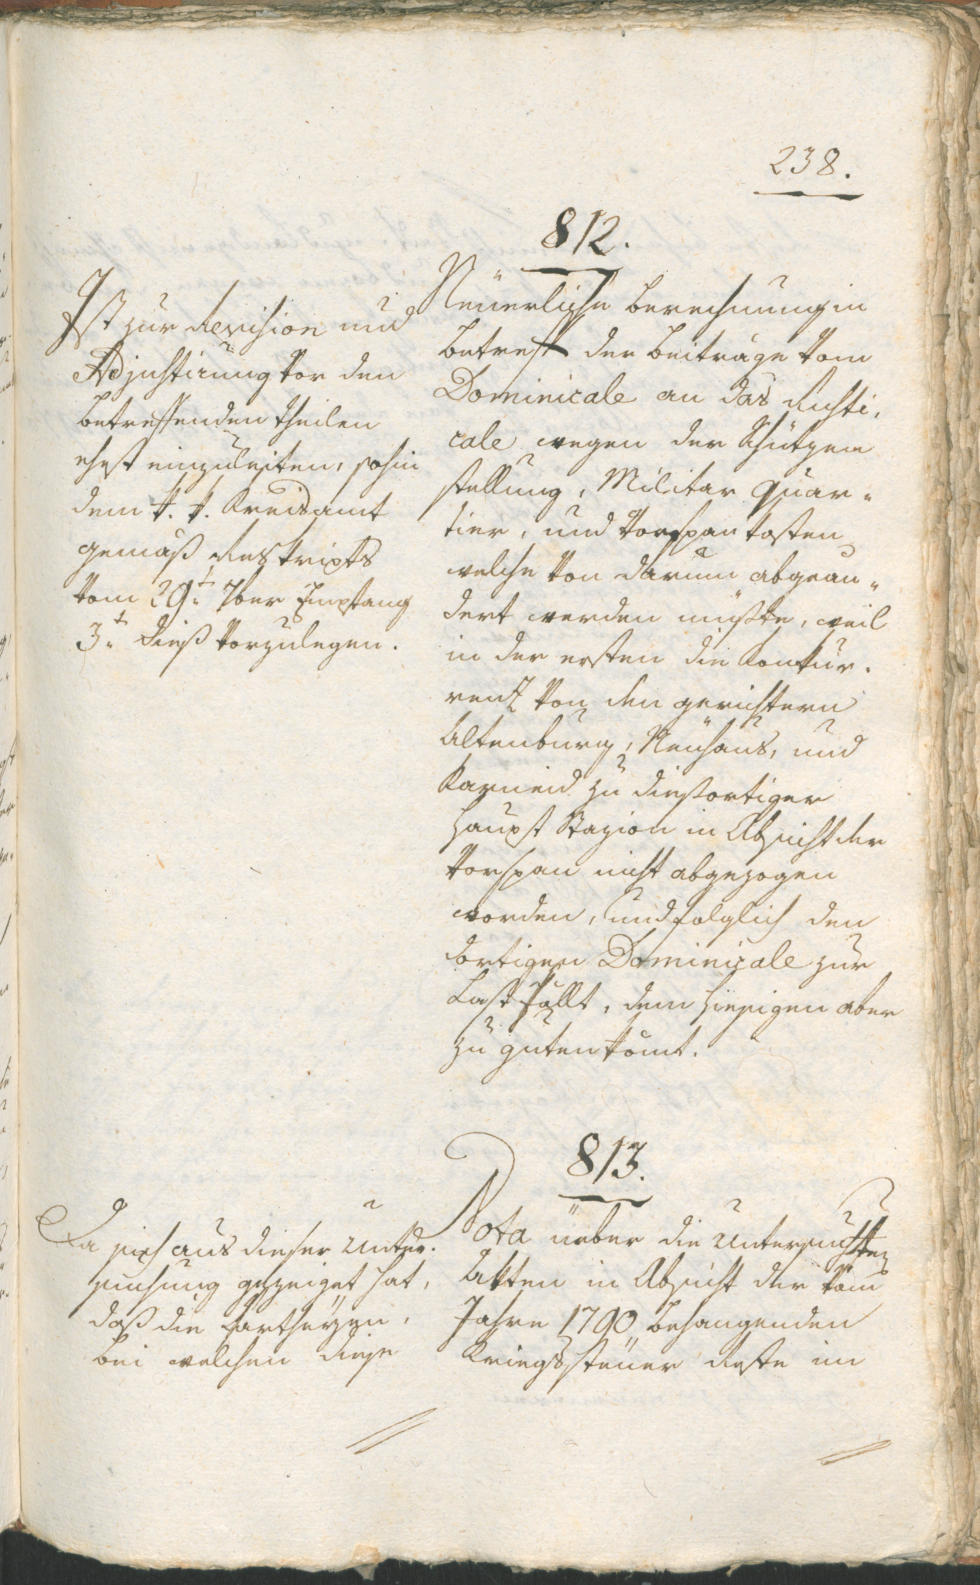 238.
812.
Ist zur Revision und
Adjustirung vor den
betreffenden Theilen
ehest einzuleiten, sohin
dem k. k. Kreisamt
gemäß Reskripts
vom 29t. 7ber Empfang
3t. dieß vorzulegen.
Neuerliche Berechnung in
betreff der Beiträge vom
Dominicale an das Rusti,
cale wegen der Schützen
stellung, Militar Quar-
tier, und Vorspan kosten
welche von darum abgeän-
dert werden müßte, weil
in der ersten die Konkur-
renz von den gerichtern
Altenburg, Neuhaus, und
Karneid zu diesortiger
Haupt Stazion in Absicht der
Vorspan nicht abgezogen
worden, und folglich den
dortigen Dominicale zur
Last fällt, dem hiesigen aber
zu guten komt.
813.
Da sich aus dieser Unter-
suchung gezeiget hat,
daß die
bei welchen diese
Nota ueber die Untersuchten
Akten in Absicht der vom
Jahre 1790 behangenden
Kriegssteuer Reste im